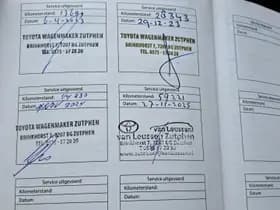 Service uitgevoerd
Kilometerstand:
Datum: 6-4-2023
TOYOTA WAGENMAKER ZUTPHEN
BRINKHORST 7, 7207 BG ZUTPHEN
TEL. 0575 - 57 28 20
Service uitgevoerd
Kilometerstand: 28343
Datum: 29-12-23
TOYOTA WAGENMAKER ZUTPHEN
BRINKHORST 7, 7207 BG ZUTPHEN
TEL. 0575 - 57 28 20
Service uitgevoerd
Kilometerstand:
Datum:
TOYOTA WAGENMAKER ZUTPHEN
BRINKHORST 7, 7207 BG ZUTPHEN
TEL. 0575 - 57 28 20
Service uitgevoerd
Kilometerstand: 59321
Datum: 27-11-2025
van Leussen
van Leussen Zutphen
Brinkhorst 7, 7207 BG Zutphen
Service uitgevoerd
Kilometerstand:
Datum:
Service uitgevoerd
Kilometerstand:
Datum: